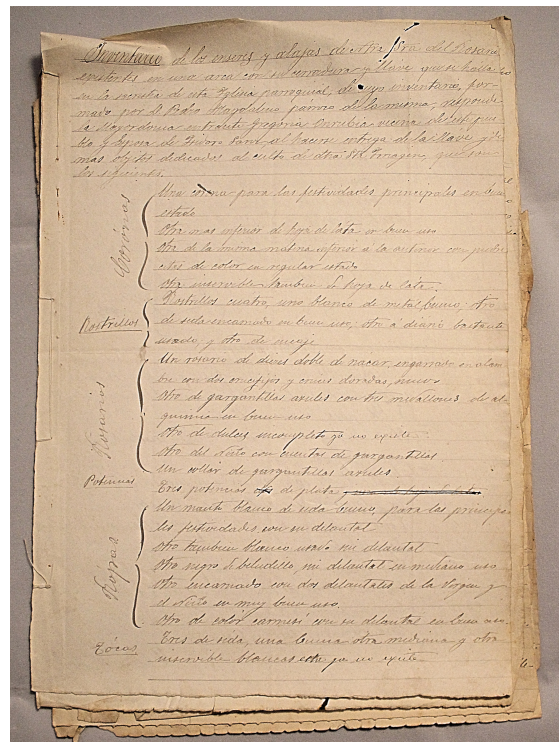 Inventario de los enseres y alajas de Ntra Sra del Rosario
existentes en una arca con su cerradura y llave que se halla
en la de esta Yglesia parroquial, de cuyo inventario, for-
mado por D Pedro Magdaleno párroco de la misma, responde
la Mayordoma entrante Gregoria vecina de este pue-
blo y esposa de Ysidoro al hacerse entrega de la llave y de
mas objetos dedicados al culto de dha Imagen, que son
los siguientes.
Coronas
Una corona para las festividades principales en buen
estado
Otra mas inferior de hoja de lata en buen uso
Otra de la misma materia inferior a la anterior con
de color en regular estado
Otra inservible tambien de hoja de lata.
Rostrillos
Rostrillos cuatro, uno blanco de metal bueno; otro
de seda encarnado en buen uso; otro a diario bastante
usado, y otro de
Rosarios
Un rosario de dieces doble de nacar, engarzado en alam
bre con dos crucifijos y doradas, nuevo
Otro de gargantillas azules con tres medallones de al-
quimia en buen uso
Otro de dulces incompleto ya no existe.
Otro del Niño con cuentas de gargantillas
Un collar de gargantillas azules.
Potencias
Tres potencias de plata
Ropas
Un manto blanco de seda bueno, para las principa-
les festividades con su delantal
Otro tambien blanco usado sin delantal
Otro negro de beludillo, sin delantal en mediano uso
Otro encarnado con dos delantales de la Virgen y
el Niño en muy buen uso.
Otro de color carmesi con su delantal en buen uso.
Tócas
Tres de seda, una buena otra mediana y otra
inservible blancas esta ya no existe